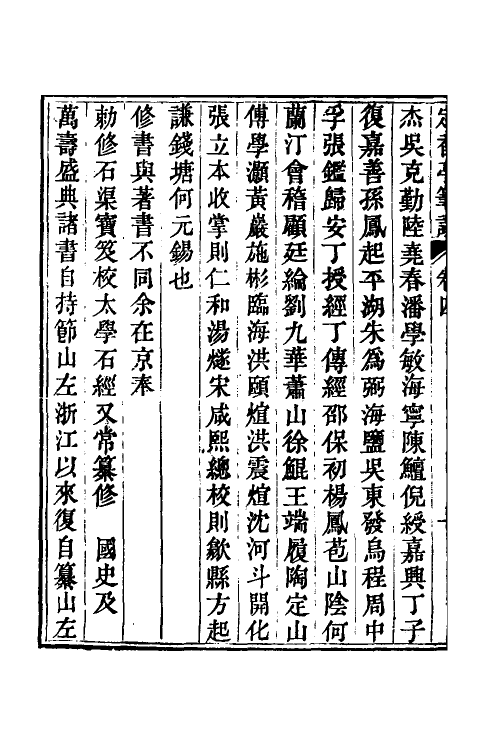 定香亭筆談 卷四
杰吳克勤陸堯春潘學敏海寧陳鱣倪綬嘉興丁子
復嘉善孫鳳起平湖朱為弼海鹽吳東發烏程周中
孚張鑑歸安丁授經丁傳經邵保初楊鳳苞山陰何
蘭汀會稽顧廷綸劉九華蕭山徐鯤王端履陶定山
傅學灝黃巖施彬臨海洪頤煊洪震煊沈河斗開化
張立本收掌則仁和湯燧宋咸熙總校則歙縣方起
謙錢塘何元錫也
修書與著書不同余在京奉
勅修石渠寶笈校太學石經又常纂修 國史及
萬壽盛典諸書自持節山左浙江以來復自纂山左